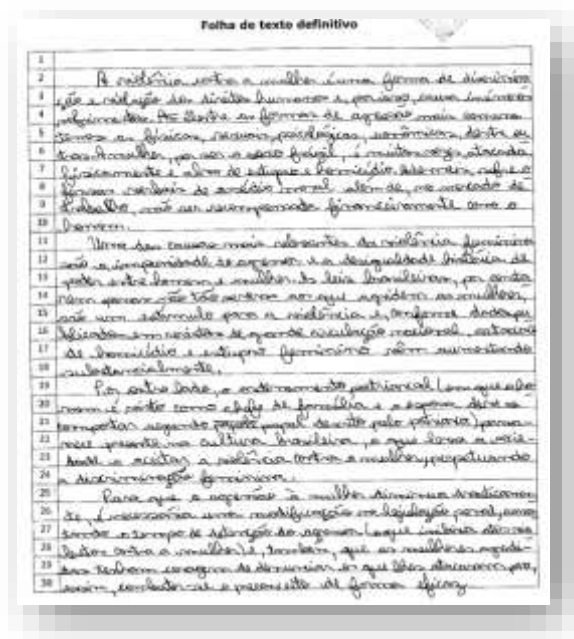 Folha de texto definitivo
1
2 A violência contra a mulher é uma forma de discrimina
3 ção e violação dos direitos humanos e, por isso, causa inúmeros
4 sofrimentos. Dentre as formas de agressão mais comuns
5 temos as físicas, sexuais, psicológicas, econômicas, dentre ou
6 tras. A mulher, por ser o sexo frágil, é muitas vezes atacada
7 fisicamente e além de estupro e homicídio, sofre
8 formas verbais de assédio moral além de, no mercado de
9 trabalho, não ser recompensada financeiramente como o
10 homem.
11 Uma das causas mais relevantes da violência feminina
12 são a impunidade do agressor e a desigualdade histórica de
13 poder entre homens e mulheres. As leis brasileiras, por
14 penas tão severas aos que agridem as mulheres,
15 são um estímulo para a violência e, conforme dados pu
16 blicados em revistas de grande circulação nacional,
17 de homicídio e estupro feminino vêm aumentando
18 substancialmente.
19 Por outro lado, o patriarcal (em que o ho
20 mem é visto como chefe de família e a esposa deve se
21 comportar segundo papel descrito pelo patriarca) perma
22 nece presente na cultura brasileira, o que leva a socie-
23 dade a aceitar a violência contra a mulher, perpetuando
24 a discriminação feminina.
25 Para que a agressão à mulher diminua drasticamen
26 te, é necessária uma modificação na legislação penal, aumen
27 tando o tempo de detenção do agressor (o que inibiria
28 contra a mulher) e, também, que as mulheres agredi-
29 das tenham coragem de denunciar os que lhes atacaram para,
30 assim, combater-se o preconceito de forma eficaz.